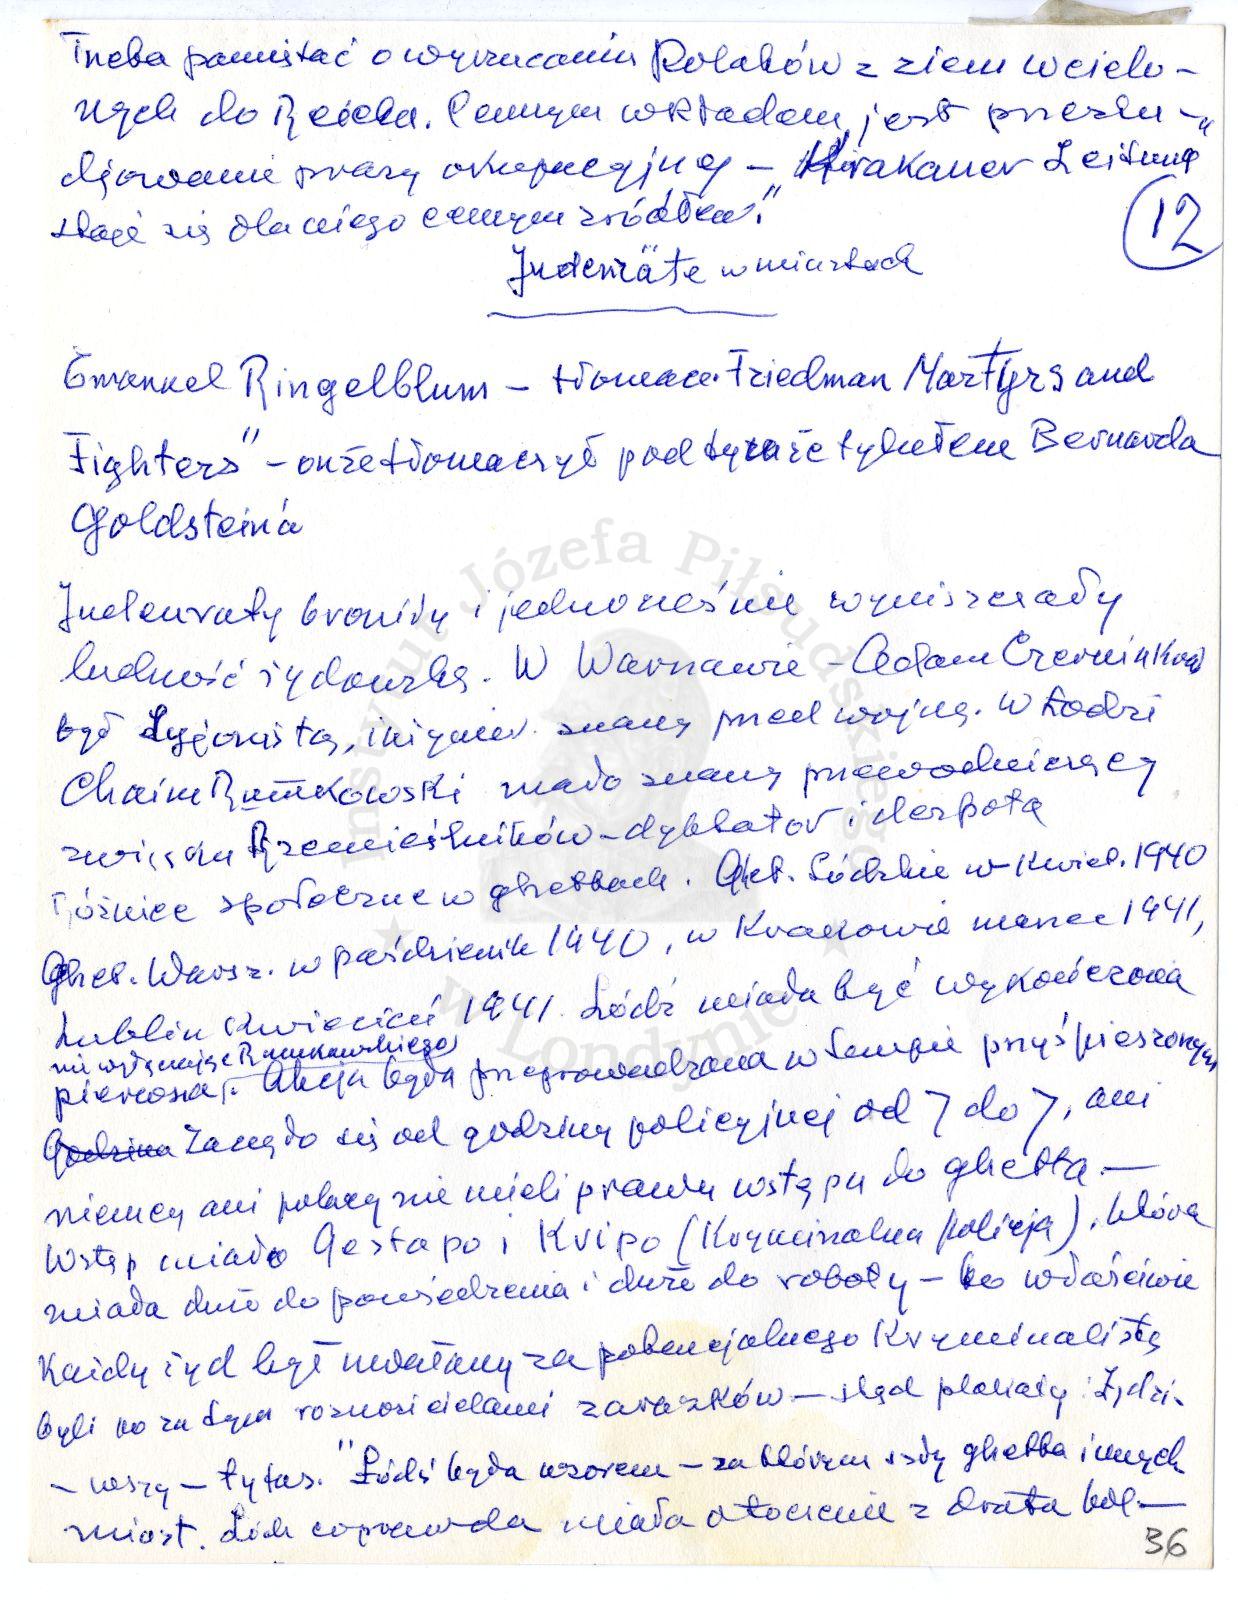 Trzeba pamiętać o wyrzucaniu Polaków z ziem wcielo-
nych do Reicha. Cennym wkładem jest przestu-
djowanie prasy okupacyjnej – "Krakauer Zeitung"
staje się dla niego cennym źródłem."
12
Judenräte w miastach
Emanuel Ringelblum – tłomacz. Friedman Martyrs and
Fighters" – on że tłomaczył pod tymże tytułem Bernarda
Goldsteina
Judenraty broniły i jednocześnie wyniszczały
ludność żydowską. W Warszawie – Adam Czerniakow
był syjonistą, inżynier. znany przed wojną. W Łodzi
Chaim Rumkowski mało znany przewodniczący
związku Rzemieślników – dyktator i despota
różnice społeczne w ghettach. Ghet. Łódzkie w kwiet. 1940
Ghet. Warsz. w październik 1940, w Krakowie marzec 1941,
Lublin kwiecień 1941. Łódź miała być wykończona
nie wyłączając Rumkowskiego
pierwsza. Akcja była przeprowadzona w tempie przyśpieszonym
Godzina Zaczęło się od godziny policyjnej od 7 do 7, ani
niemcy ani polacy nie mieli prawa wstępu do ghetta. —
Wstęp miało Gestapo i Kripo (Kryminalna policja), która
miała dużo do powiedzenia i dużo do roboty – bo właściwie
każdy żyd był uważany za potencjalnego kryminalistę
byli po za tym roznosicielami zarazków – stąd plakaty: Żydzi.
– wszy – tyfus. "Łódź była wzorem – za którym szły ghetta innych
miast. Łódź coprawda miała otoczenie z drutu kol—
36
Instytut Józefa Piłsudskiego
w Londynie